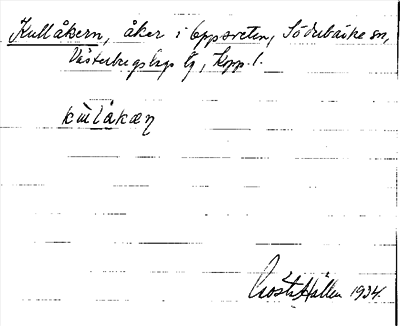 Kullåkern, åker i Uppsveten, Söderbärke sn,
Västerbergslags tg, Kopp. l.
kullåkæɳ
Gösta Hallén 1934.